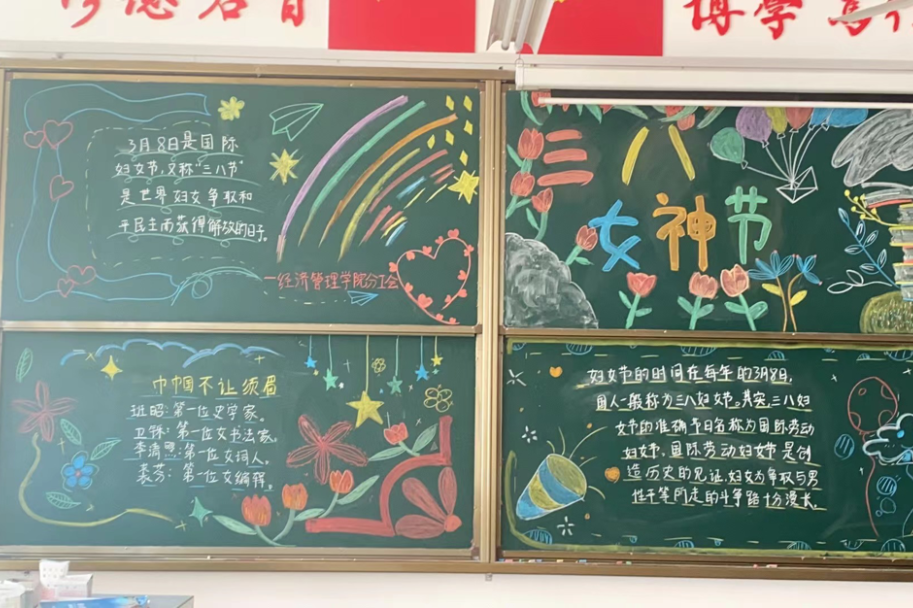 修德启智
博学笃行
3月8日是国际
妇女节,又称"三八节"
是世界妇女争取和
平民主而获得解放的日子。
一经济管理学院分工会
三八
女神节
巾帼不让须眉
班昭:第一位史学家,
卫铄:第一位女书法家,
李清照:第一位女词人。
裘芬:第一位女编辑。
妇女节的时间在每年的3月8日,
国人一般称为三八妇女节。其实,三八妇
女节的准确节日名称为国际劳动
妇女节,国际劳动妇女节是创
造历史的见证,妇女为争取与男
性平等同走的斗争路十分漫长。